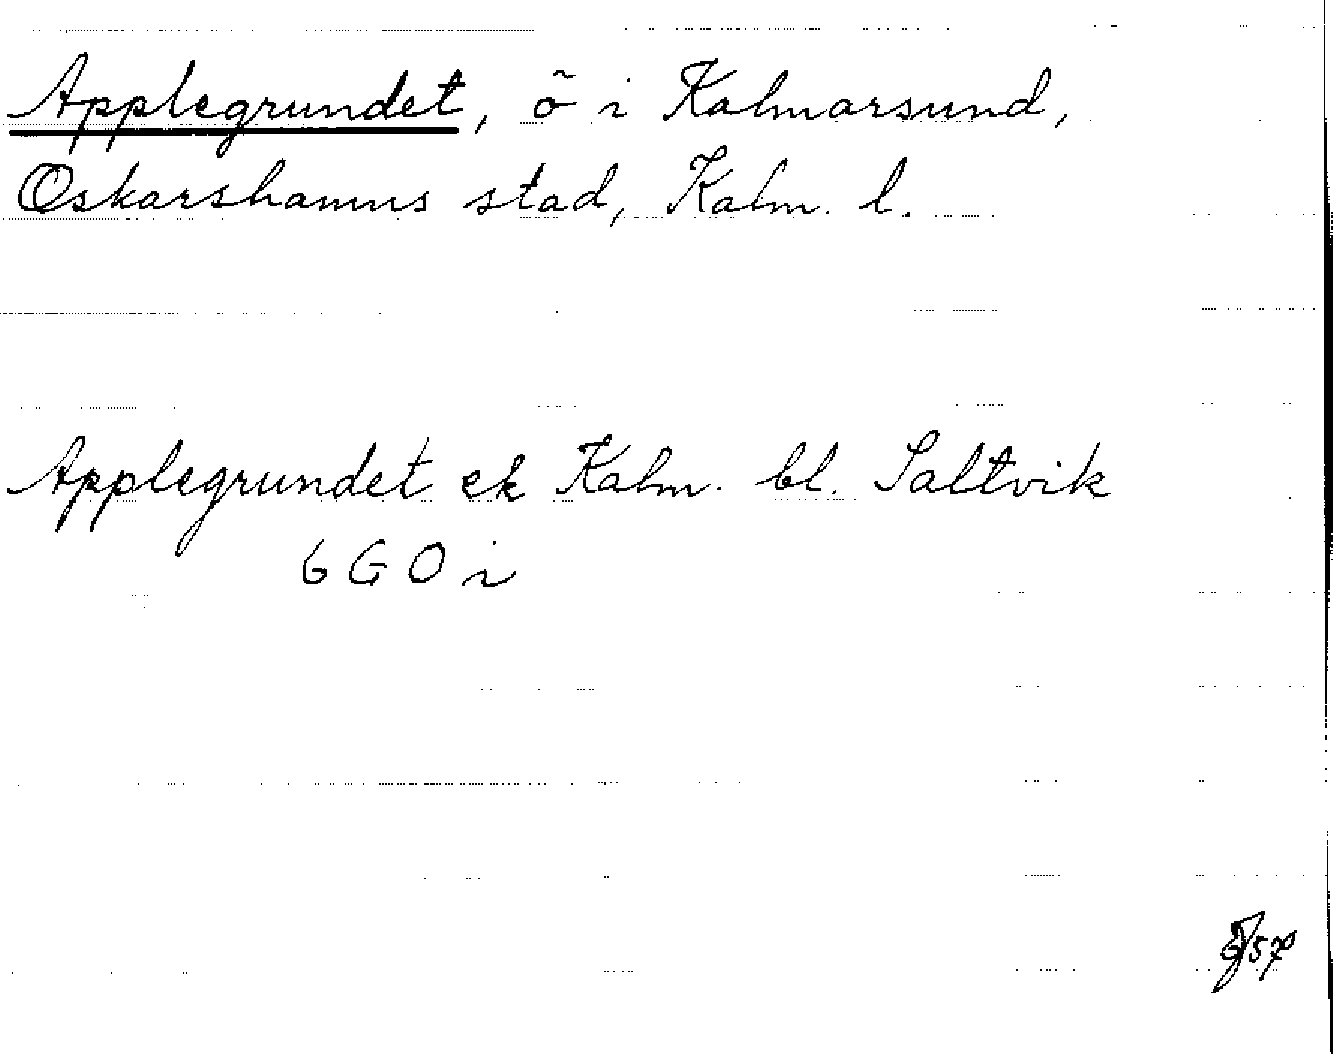 Applegrundet, ö i Kalmarsund,
Oskarshamns stad, Kalm. l.
Applegrundet ek Kalm. bl. Saltvik
6 G O i